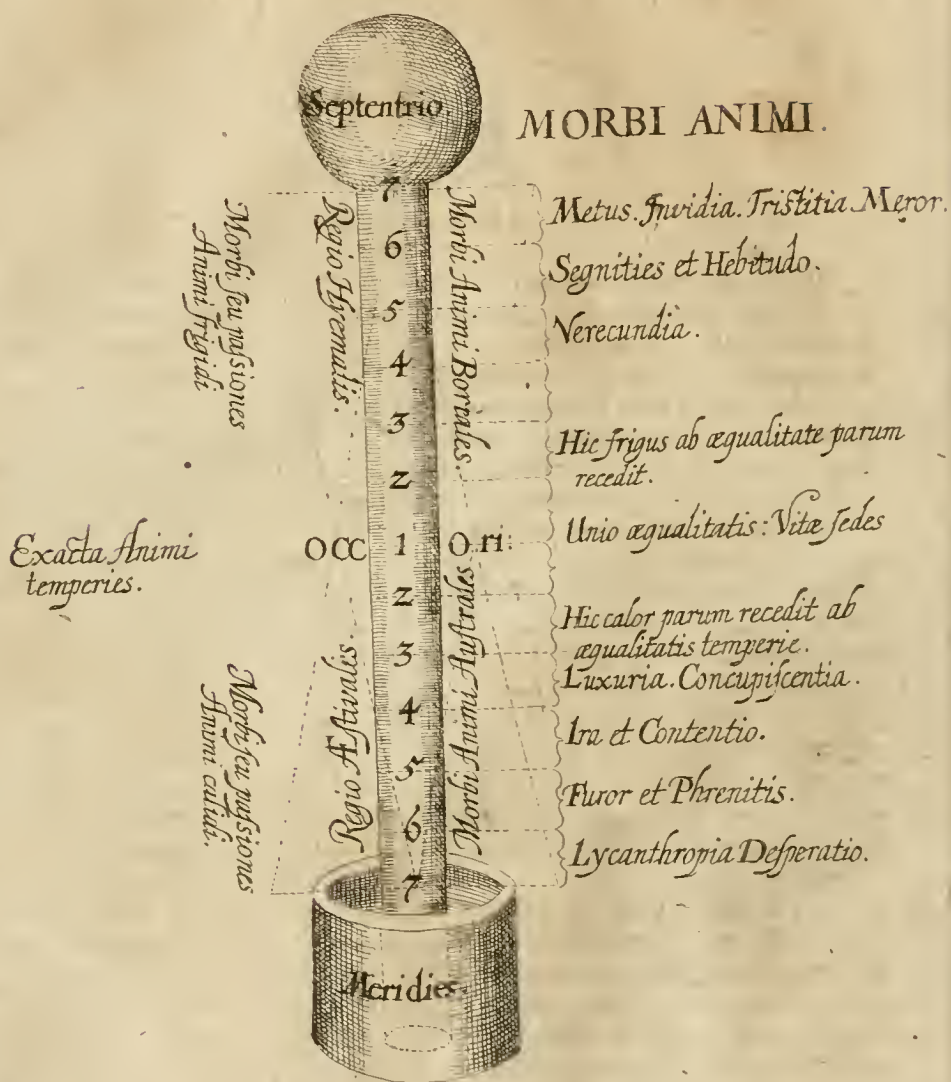 Septentrio.
MORBI ANIMI.
7
6
5
4
3
2
1
2
3
4
5
6
7
Morbi seu passiones
Animi frigidi
Regio Hyemalis.
Morbi Animi Boreales.
Metus. Invidia. Tristitia Meror.
Segnities et Hebitudo.
Verecundia.
Hic frigus ab æqualitate parum
recedit.
Exacta Animi
temperies.
OCC
Ori:
Unio æqualitatis: Vitæ sedes
Hic calor parum recedit ab
æqualitatis temperie.
Luxuria. Concupiscentia.
Ira et Contentio.
Furor et Phrenitis.
Lycanthropia Desperatio.
Morbi seu passiones
Animi calidi.
Regio Æstivalis.
Morbi Animi Australes
Meridies.